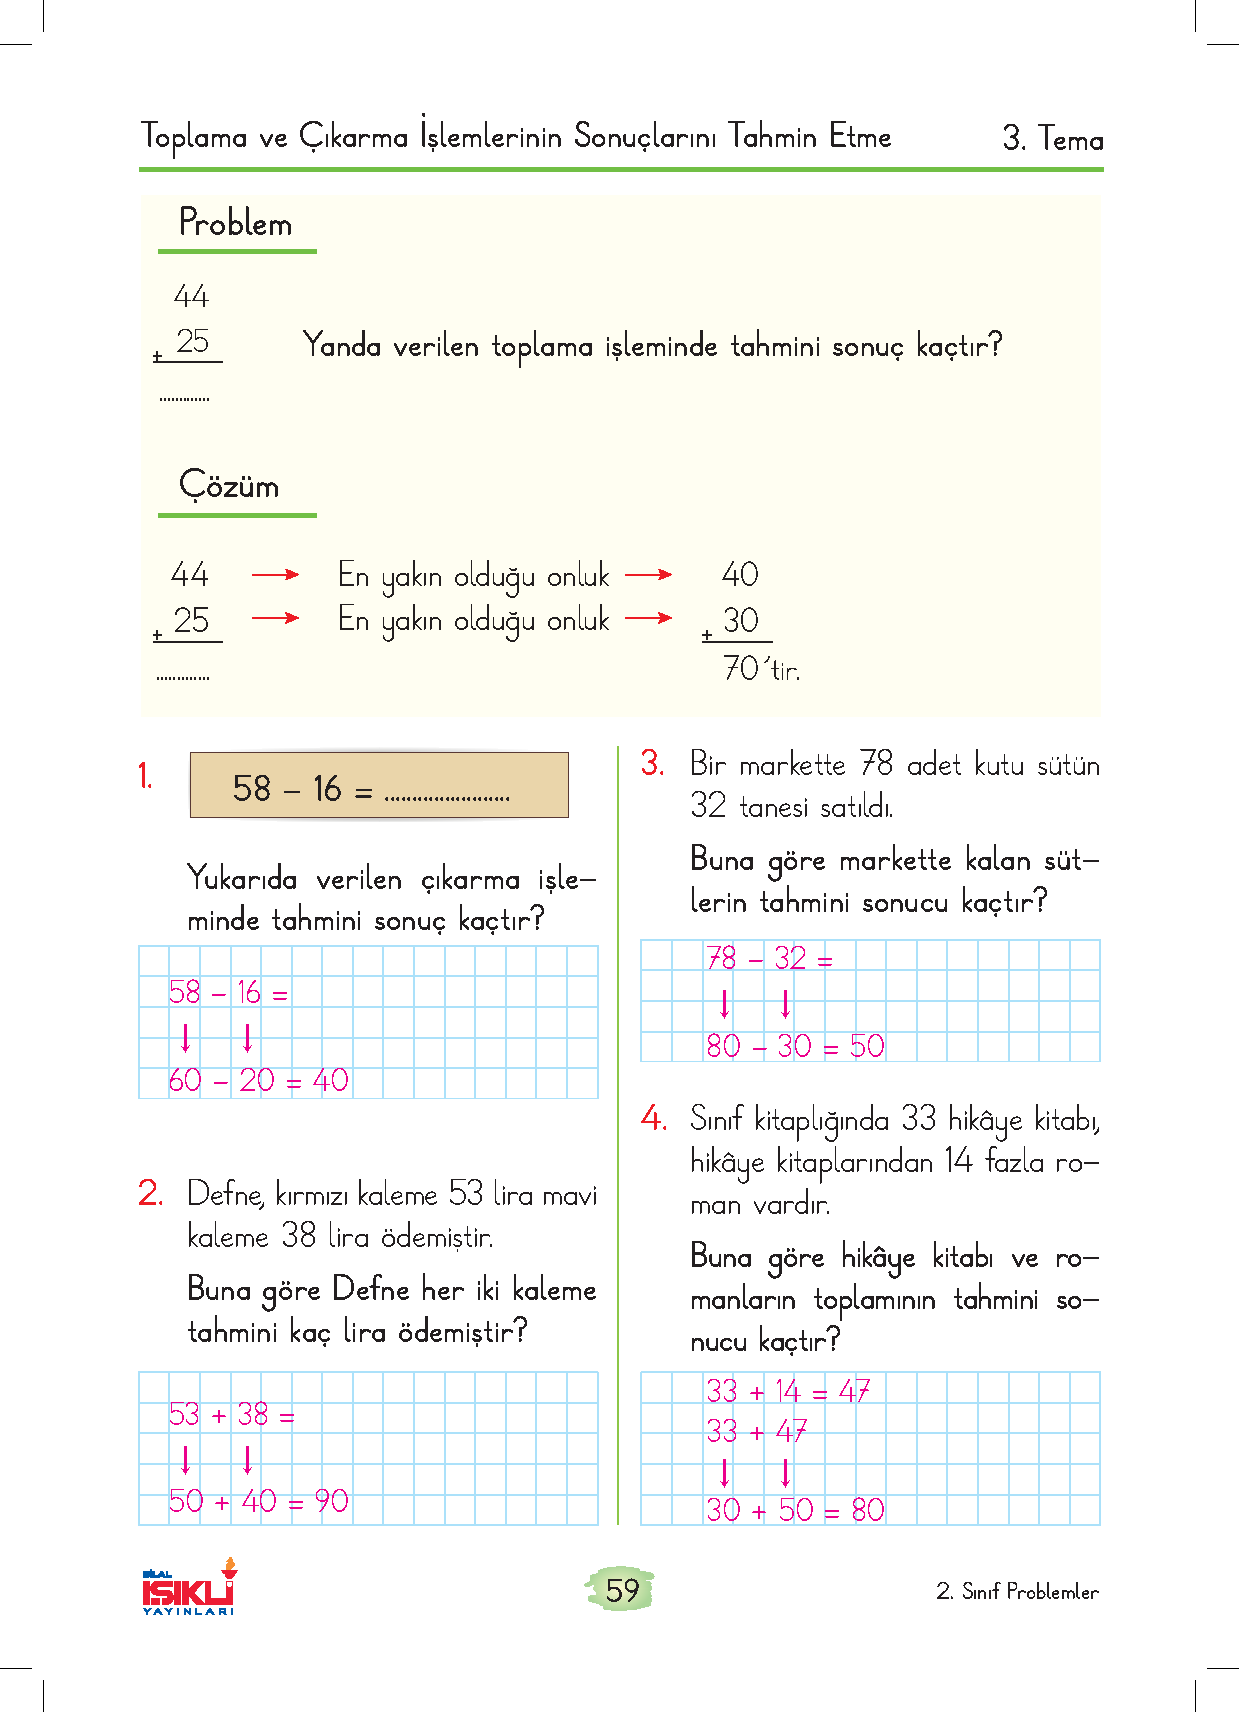 Toplama ve Çıkarma İşlemlerinin Sonuçlarını Tahmin Etme
3. Tema
Problem
44
+ 25
Yanda verilen toplama işleminde tahmini sonuç kaçtır?
.............
Çözüm
44 → En yakın olduğu onluk → 40
+ 25 → En yakın olduğu onluk → + 30
............. 70'tir.
1. 58 – 16 = .......................
Yukarıda verilen çıkarma işle-
minde tahmini sonuç kaçtır?
58 – 16 =
↓ ↓
60 – 20 = 40
2. Defne, kırmızı kaleme 53 lira mavi
kaleme 38 lira ödemiştir.
Buna göre Defne her iki kaleme
tahmini kaç lira ödemiştir?
53 + 38 =
↓ ↓
50 + 40 = 90
3. Bir markette 78 adet kutu sütün
32 tanesi satıldı.
Buna göre markette kalan süt-
lerin tahmini sonucu kaçtır?
78 – 32 =
↓ ↓
80 – 30 = 50
4. Sınıf kitaplığında 33 hikâye kitabı,
hikâye kitaplarından 14 fazla ro-
man vardır.
Buna göre hikâye kitabı ve ro-
manların toplamının tahmini so-
nucu kaçtır?
33 + 14 = 47
33 + 47
↓ ↓
30 + 50 = 80
BİLAL
IŞIKLI
YAYINLARI
59
2. Sınıf Problemler